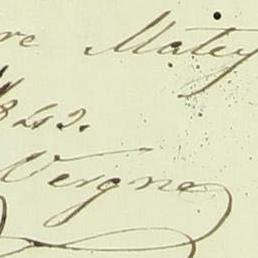 re Matey
842.
Vergne